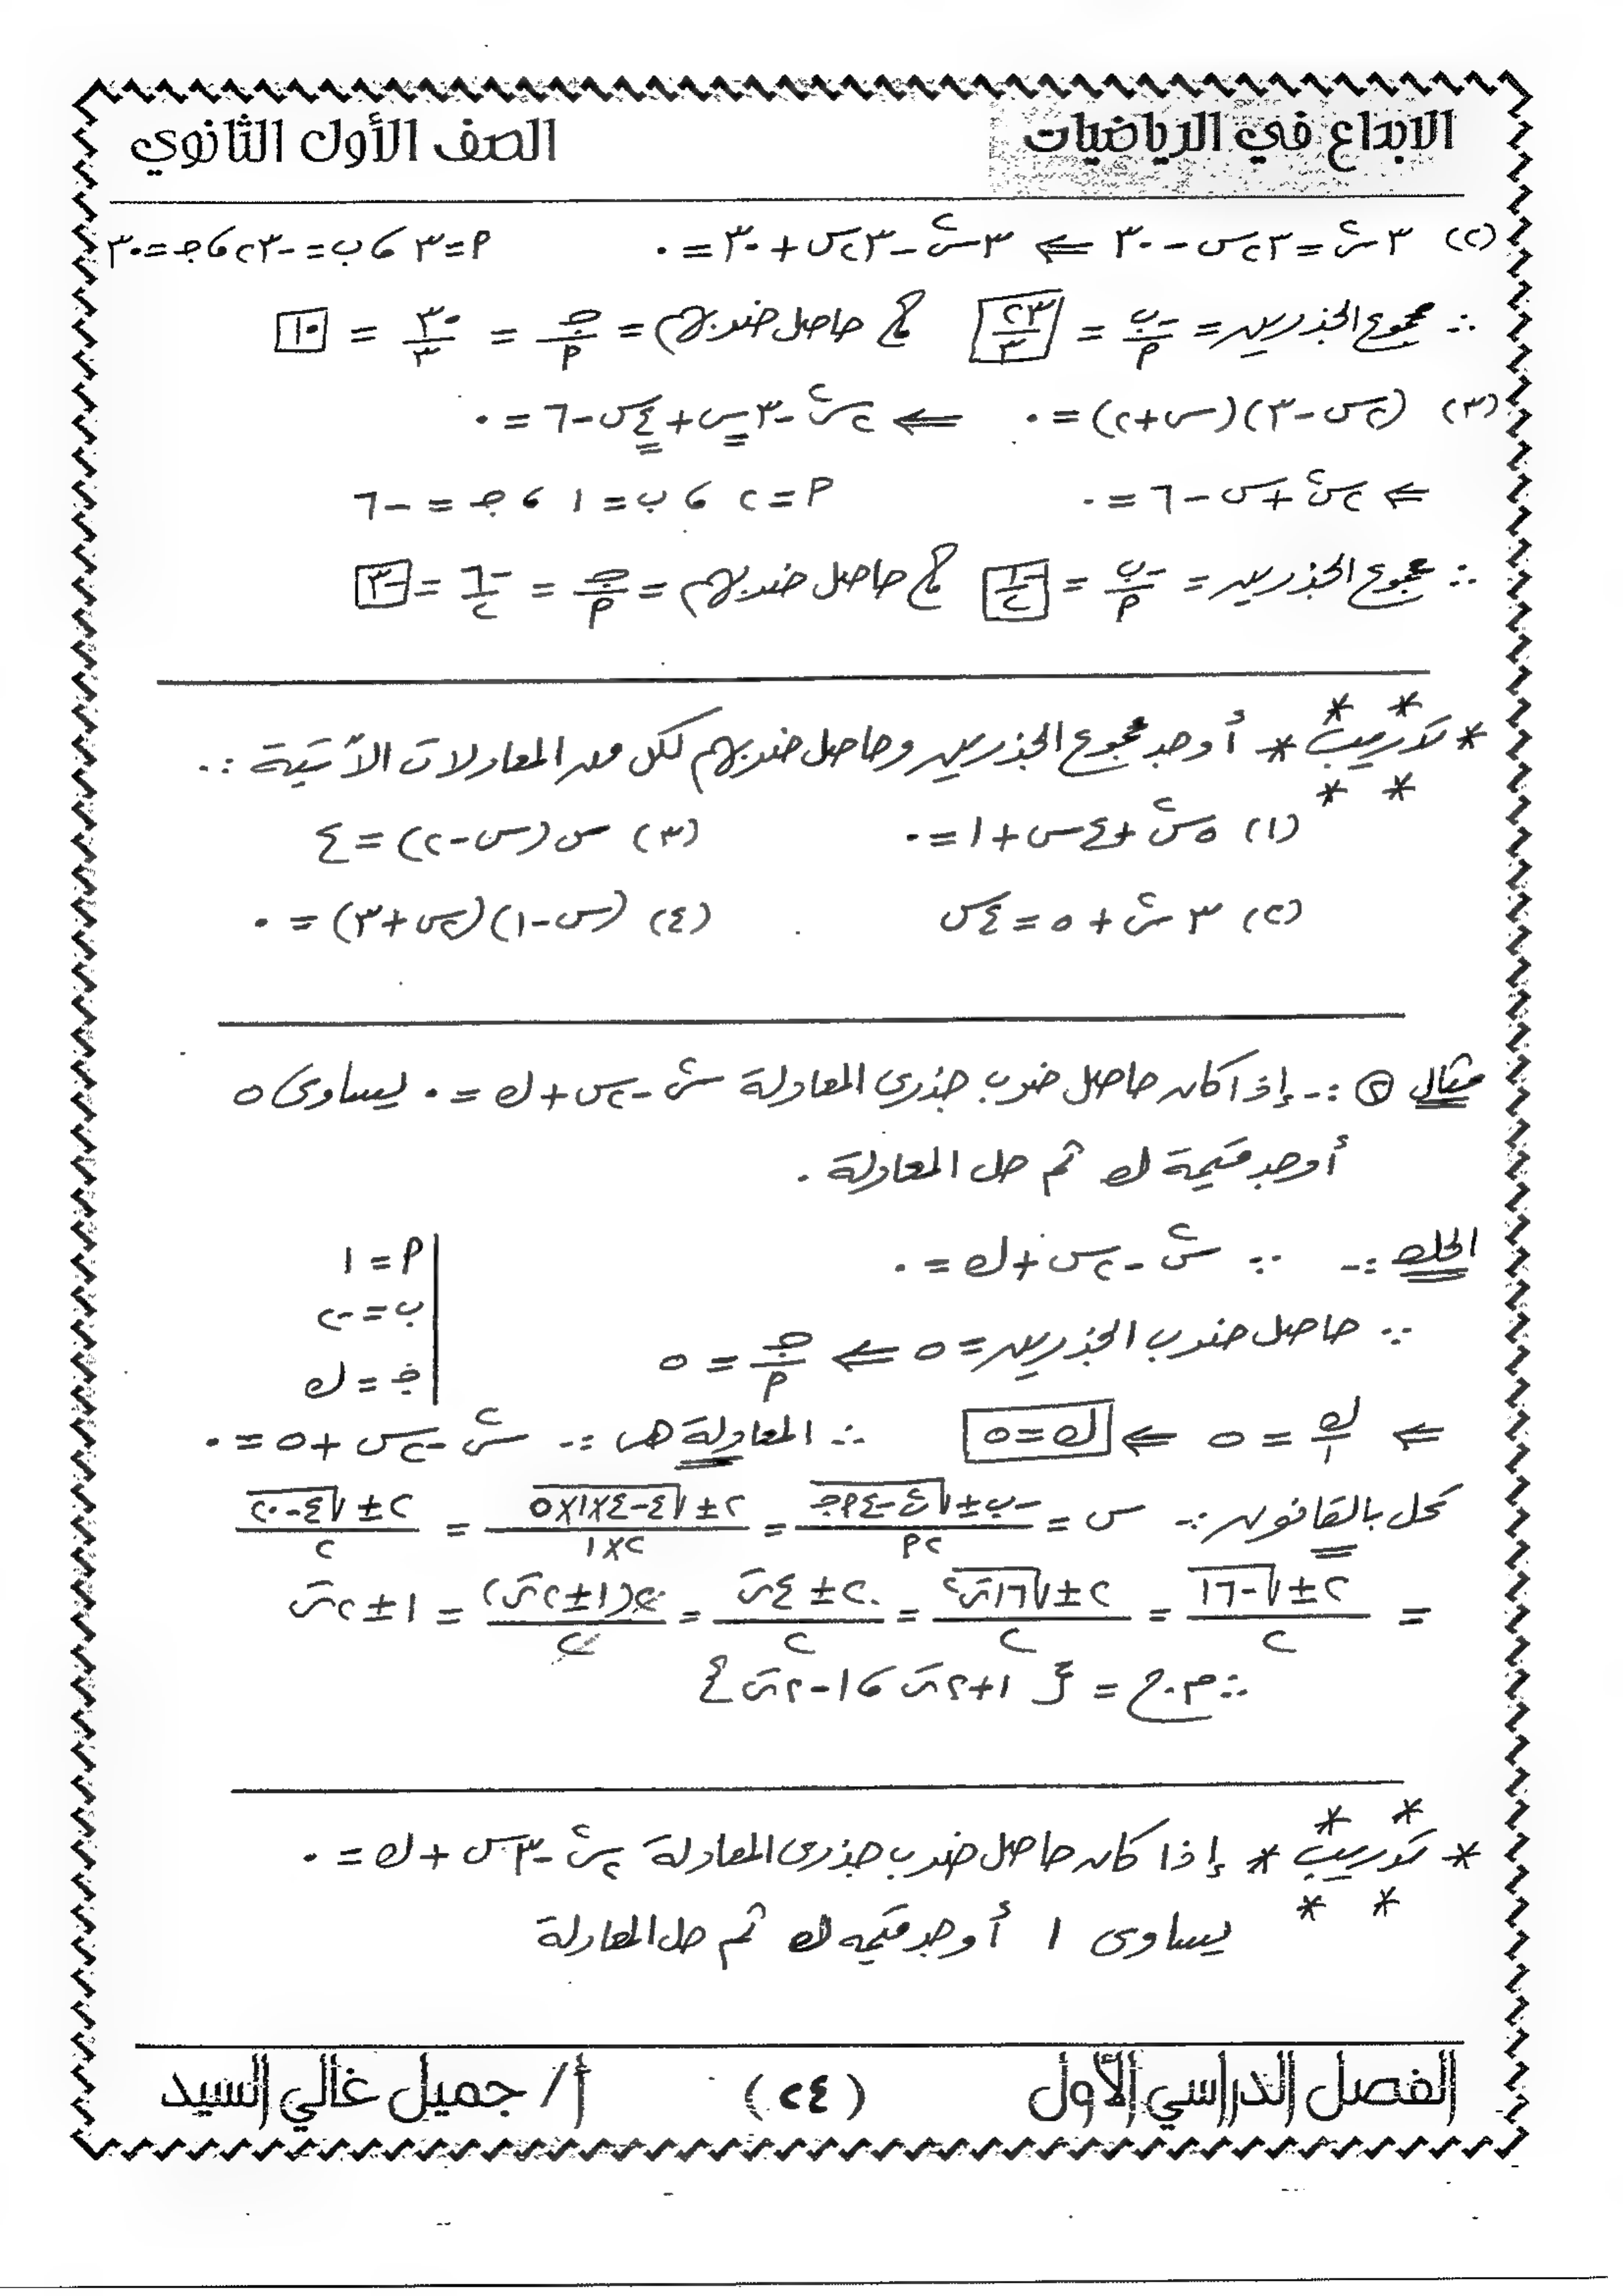 الابداع في الرياضيات
الصف الأول الثانوي
(٢) ٣س² = ٢٣س - ٣٠ ⇐ ٣س² - ٢٣س + ٣٠ = ٠ أ = ٣ ، ب = -٢٣ ، جـ = ٣٠
∴ مجموع الجذرين = -ب/أ = ٢٣/٣ ، حاصل ضربهم = جـ/أ = ٣٠/٣ = ١٠
(٣) (٢س - ٣)(س + ٢) = ٠ ⇐ ٢س² - ٣س + ٤س - ٦ = ٠
⇐ ٢س² + س - ٦ = ٠ أ = ٢ ، ب = ١ ، جـ = -٦
∴ مجموع الجذرين = -ب/أ = -١/٢ ، حاصل ضربهم = جـ/أ = -٦/٢ = -٣
* تدريب * أوجد مجموع الجذرين وحاصل ضربهم لكل من المعادلات الآتية :-
(١) ٥س² + ٤س + ١ = ٠ (٣) س(س - ٢) = ٤
(٢) ٣س² + ٥ = ٤س (٤) (س - ١)(٢س + ٣) = ٠
مثال ٢ :- إذا كان حاصل ضرب جذرى المعادلة س² - ٢س + ك = ٠ يساوى ٥
أوجد قيمة ك ثم حل المعادلة .
الحل :- ∵ س² - ٢س + ك = ٠ أ = ١
ب = -٢
∵ حاصل ضرب الجذرين = ٥ ⇐ جـ/أ = ٥
جـ = ك
⇐ ك/١ = ٥ ⇐ ك = ٥ ∴ المعادلة هى :- س² - ٢س + ٥ = ٠
نحل بالقانون :- س = (-ب ± √(ب² - ٤أجـ))/٢أ = (٢ ± √(٤ - ٤×١×٥))/(٢×١) = (٢ ± √(٤ - ٢٠))/٢
= (٢ ± √-١٦)/٢ = (٢ ± √(١٦ت²))/٢ = (٢ ± ٤ت)/٢ = ٢(١ ± ٢ت)/٢ = ١ ± ٢ت
∴ م.ح = { ١ + ٢ت ، ١ - ٢ت }
* تدريب * إذا كان حاصل ضرب جذرى المعادلة ٢س² - ٣س + ك = ٠
يساوى ١ أوجد قيمه ك ثم حل المعادلة
الفصل الدراسي الأول
(٢٤)
أ/ جميل غالي السيد